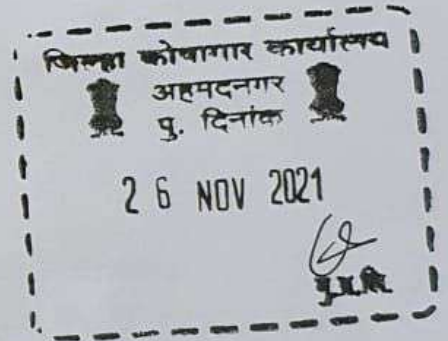 जिल्हा कोषागार कार्यालय
अहमदनगर
पु. दिनांक
26 NOV 2021